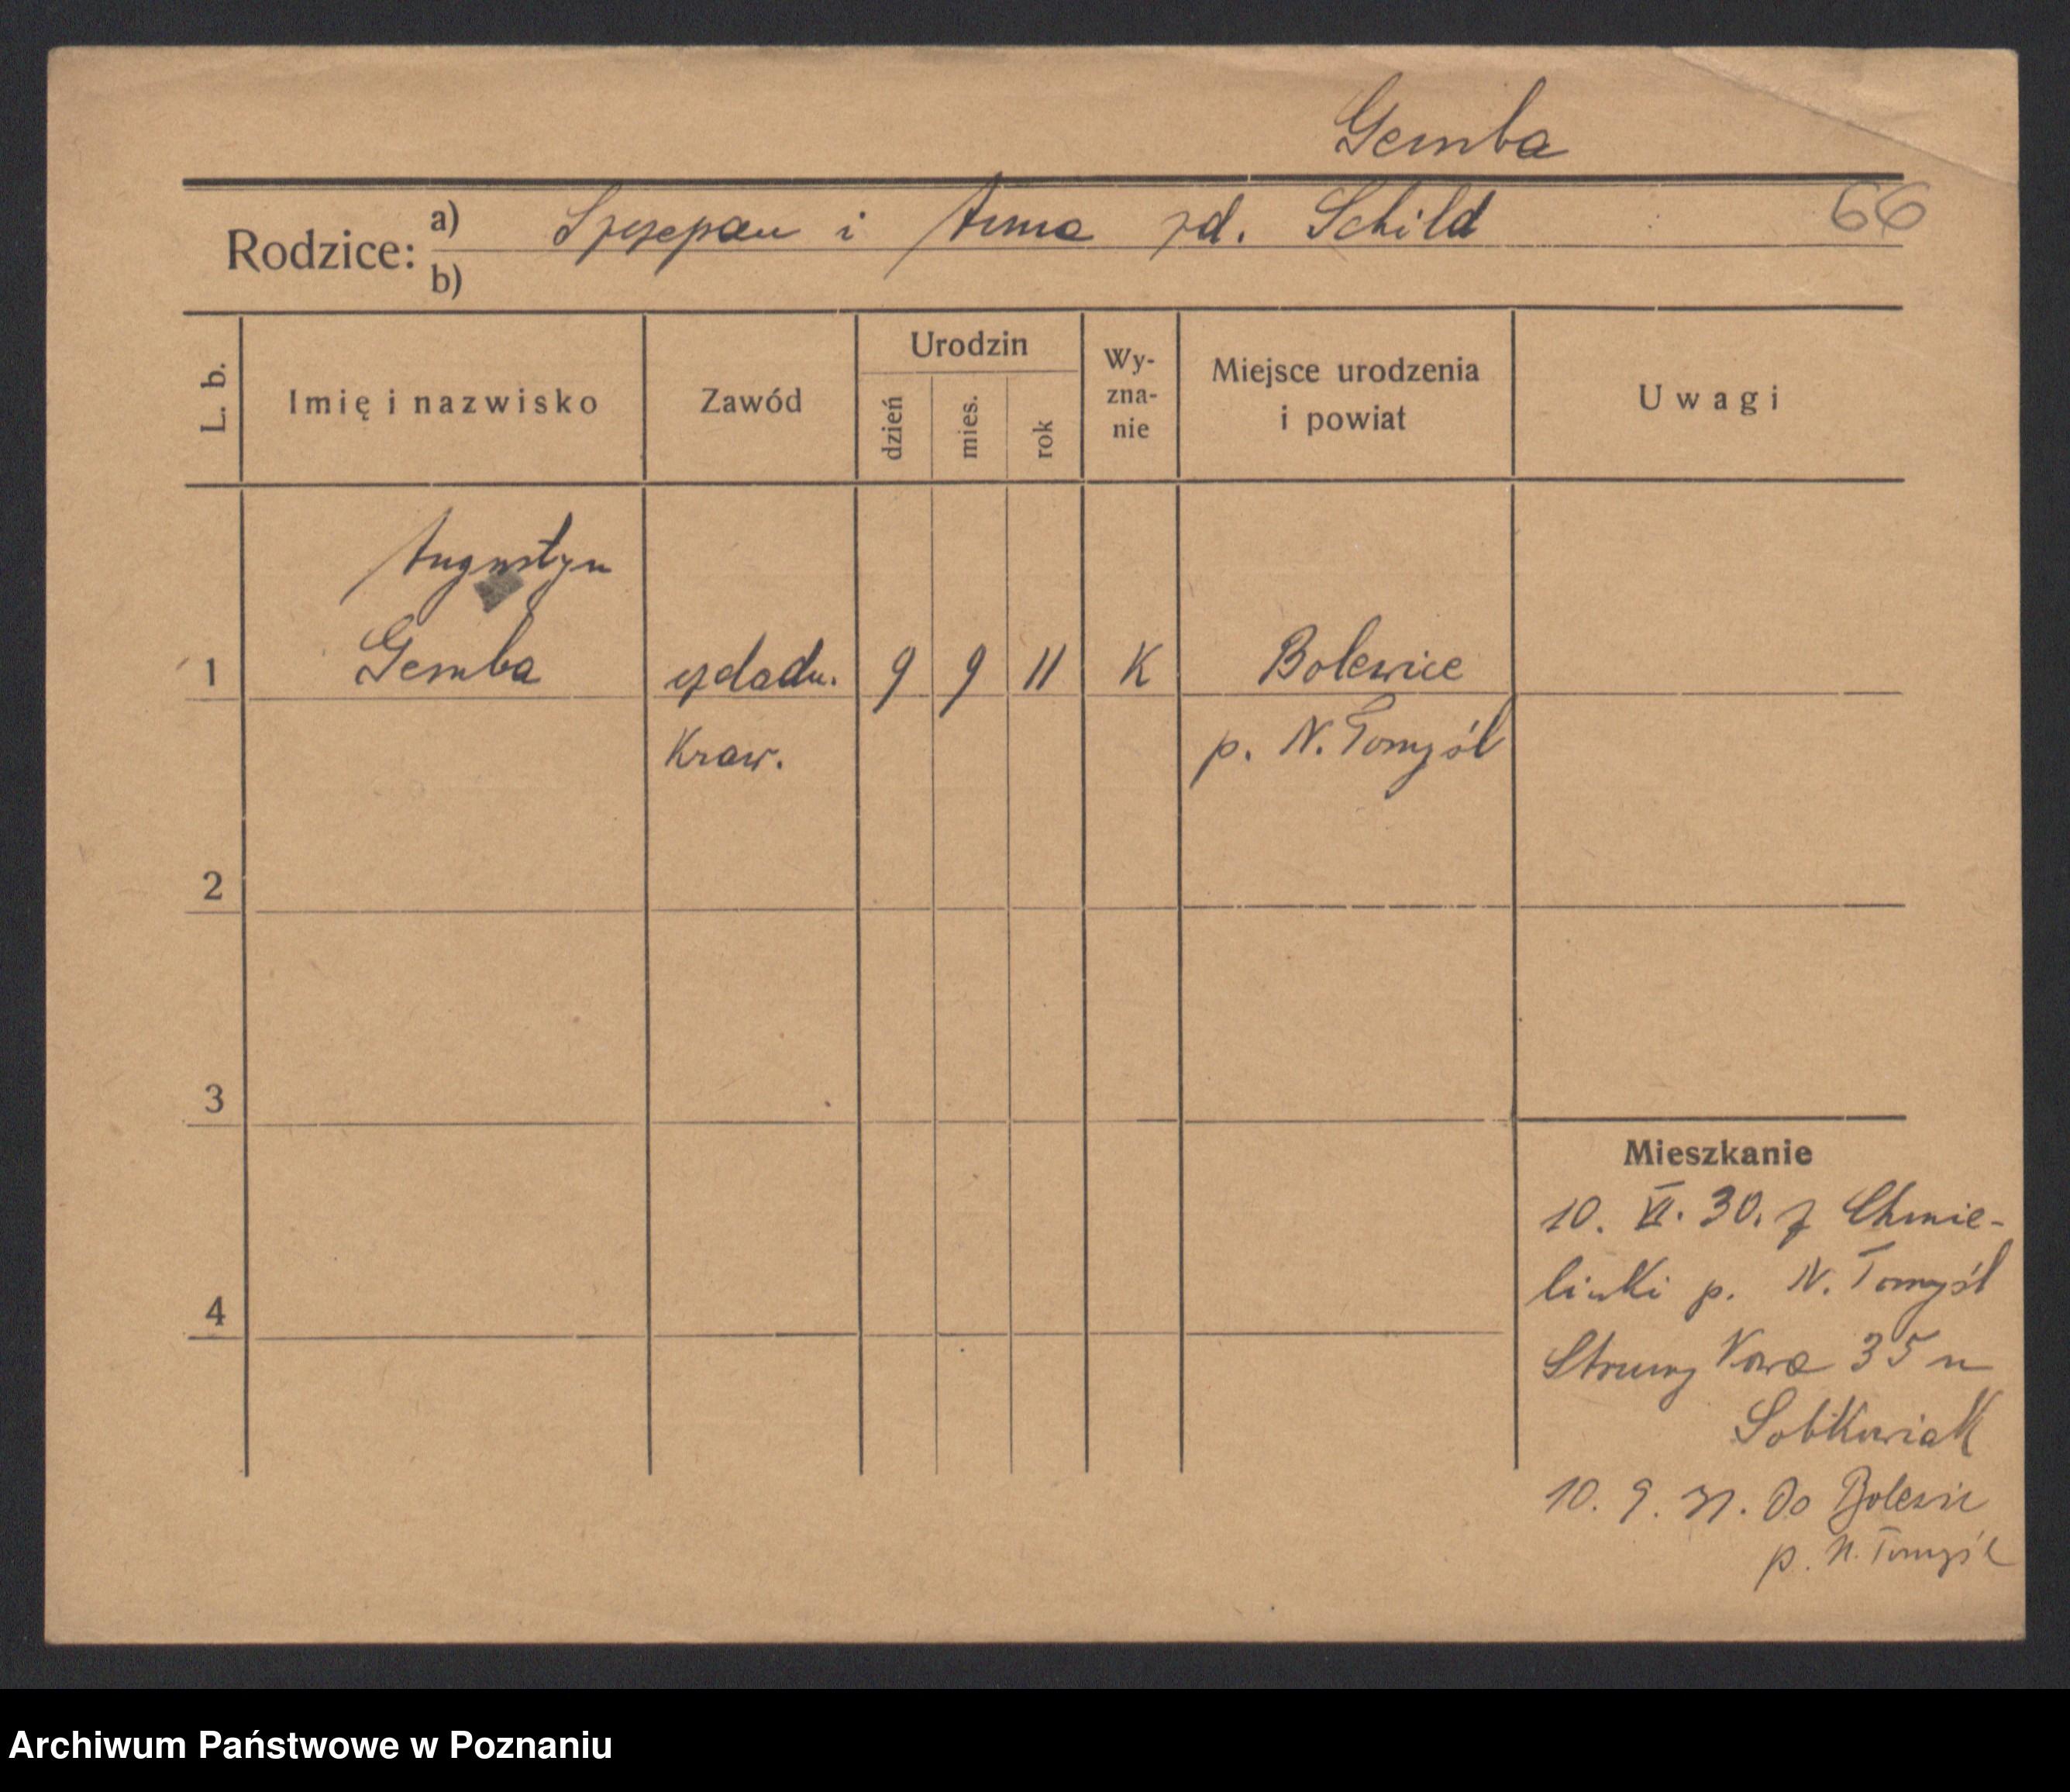 Gemba
66
Rodzice: a) Szczepan i Anna zd. Schild
b)
L. b.
Imię i nazwisko
Zawód
Urodzin
dzień
mies.
rok
Wy-
zna-
nie
Miejsce urodzenia
i powiat
Uwagi
Augustyn
1 Gemba czeladn. 9 9 11 K Bolewice
Kraw. p. N. Tomyśl
2
3
4
Mieszkanie
10. VI. 30. z Chmie-
linki p. N. Tomyśl
Strumy Nowa 35 u
Sobkowiak
10. 9. 31. do Bolewic
p. N. Tomyśl
Archiwum Państwowe w Poznaniu